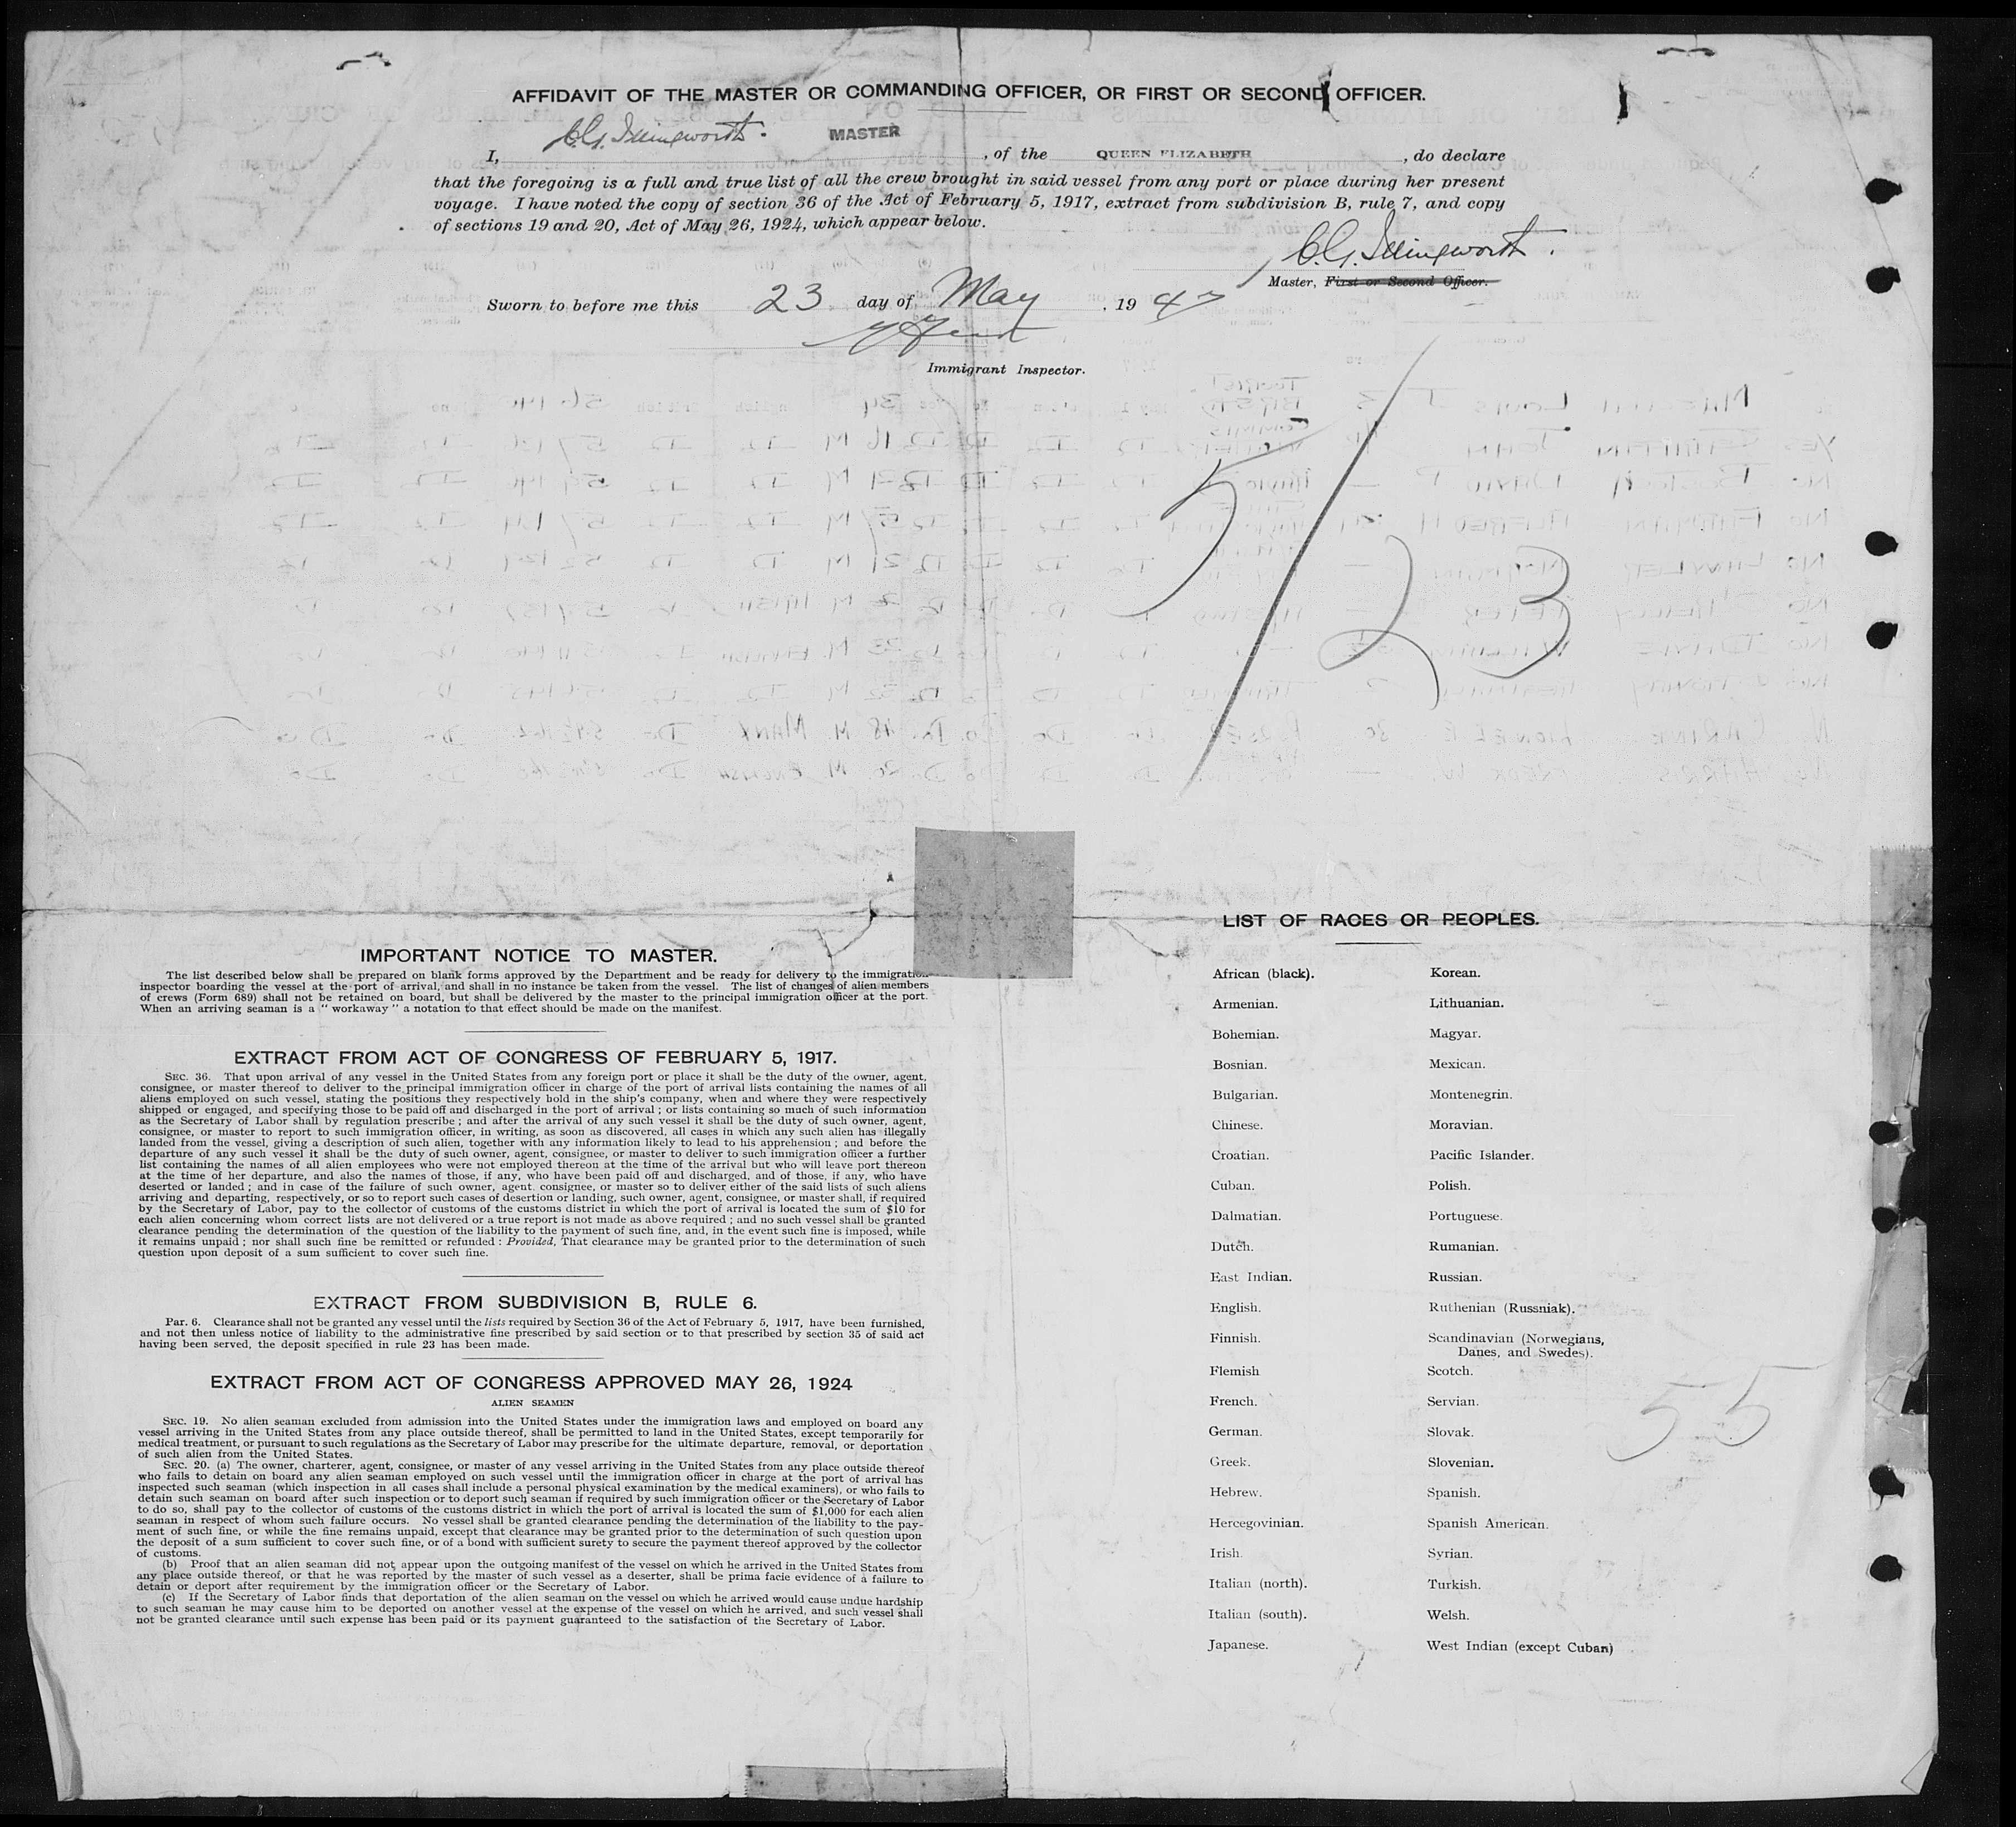 AFFIDAVIT OF THE MASTER OR COMMANDING OFFICER, OR FIRST OR SECOND OFFICER.
I, C.G. Illingworth. MASTER, of the QUEEN ELIZABETH, do declare
that the foregoing is a full and true list of all the crew brought in said vessel from any port or place during her present
voyage. I have noted the copy of section 36 of the Act of February 5, 1917, extract from subdivision B, rule 7, and copy
of sections 19 and 20, Act of May 26, 1924, which appear below.
C.G. Illingworth.
Master, First or Second Officer.
Sworn to before me this 23 day of May, 1947
Immigrant Inspector.
5/23
IMPORTANT NOTICE TO MASTER.
The list described below shall be prepared on blank forms approved by the Department and be ready for delivery to the immigration
inspector boarding the vessel at the port of arrival, and shall in no instance be taken from the vessel. The list of changes of alien members
of crews (Form 689) shall not be retained on board, but shall be delivered by the master to the principal immigration officer at the port.
When an arriving seaman is a "workaway" a notation to that effect should be made on the manifest.
EXTRACT FROM ACT OF CONGRESS OF FEBRUARY 5, 1917.
SEC. 36. That upon arrival of any vessel in the United States from any foreign port or place it shall be the duty of the owner, agent,
consignee, or master thereof to deliver to the principal immigration officer in charge of the port of arrival lists containing the names of all
aliens employed on such vessel, stating the positions they respectively hold in the ship's company, when and where they were respectively
shipped or engaged, and specifying those to be paid off and discharged in the port of arrival; or lists containing so much of such information
as the Secretary of Labor shall by regulation prescribe; and after the arrival of any such vessel it shall be the duty of such owner, agent,
consignee, or master to report to such immigration officer, in writing, as soon as discovered, all cases in which any such alien has illegally
landed from the vessel, giving a description of such alien, together with any information likely to lead to his apprehension; and before the
departure of any such vessel it shall be the duty of such owner, agent, consignee, or master to deliver to such immigration officer a further
list containing the names of all alien employees who were not employed thereon at the time of the arrival but who will leave port thereon
at the time of her departure, and also the names of those, if any, who have been paid off and discharged, and of those, if any, who have
deserted or landed; and in case of the failure of such owner, agent. consignee, or master so to deliver either of the said lists of such aliens
arriving and departing, respectively, or so to report such cases of desertion or landing, such owner, agent, consignee, or master shall, if required
by the Secretary of Labor, pay to the collector of customs of the customs district in which the port of arrival is located the sum of $10 for
each alien concerning whom correct lists are not delivered or a true report is not made as above required; and no such vessel shall be granted
clearance pending the determination of the question of the liability to the payment of such fine, and, in the event such fine is imposed, while
it remains unpaid; nor shall such fine be remitted or refunded: Provided, That clearance may be granted prior to the determination of such
question upon deposit of a sum sufficient to cover such fine.
EXTRACT FROM SUBDIVISION B, RULE 6.
Par. 6. Clearance shall not be granted any vessel until the lists required by Section 36 of the Act of February 5, 1917, have been furnished,
and not then unless notice of liability to the administrative fine prescribed by said section or to that prescribed by section 35 of said act
having been served, the deposit specified in rule 23 has been made.
EXTRACT FROM ACT OF CONGRESS APPROVED MAY 26, 1924
ALIEN SEAMEN
SEC. 19. No alien seaman excluded from admission into the United States under the immigration laws and employed on board any
vessel arriving in the United States from any place outside thereof, shall be permitted to land in the United States, except temporarily for
medical treatment, or pursuant to such regulations as the Secretary of Labor may prescribe for the ultimate departure, removal, or deportation
of such alien from the United States.
SEC. 20. (a) The owner, charterer, agent, consignee, or master of any vessel arriving in the United States from any place outside thereof
who fails to detain on board any alien seaman employed on such vessel until the immigration officer in charge at the port of arrival has
inspected such seaman (which inspection in all cases shall include a personal physical examination by the medical examiners), or who fails to
detain such seaman on board after such inspection or to deport such seaman if required by such immigration officer or the Secretary of Labor
to do so, shall pay to the collector of customs of the customs district in which the port of arrival is located the sum of $1,000 for each alien
seaman in respect of whom such failure occurs. No vessel shall be granted clearance pending the determination of the liability to the pay-
ment of such fine, or while the fine remains unpaid, except that clearance may be granted prior to the determination of such question upon
the deposit of a sum sufficient to cover such fine, or of a bond with sufficient surety to secure the payment thereof approved by the collector
of customs.
(b) Proof that an alien seaman did not appear upon the outgoing manifest of the vessel on which he arrived in the United States from
any place outside thereof, or that he was reported by the master of such vessel as a deserter, shall be prima facie evidence of a failure to
detain or deport after requirement by the immigration officer or the Secretary of Labor.
(c) If the Secretary of Labor finds that deportation of the alien seaman on the vessel on which he arrived would cause undue hardship
to such seaman he may cause him to be deported on another vessel at the expense of the vessel on which he arrived, and such vessel shall
not be granted clearance until such expense has been paid or its payment guaranteed to the satisfaction of the Secretary of Labor.
LIST OF RACES OR PEOPLES.
African (black).
Armenian.
Bohemian.
Bosnian.
Bulgarian.
Chinese.
Croatian.
Cuban.
Dalmatian.
Dutch.
East Indian.
English.
Finnish.
Flemish
French.
German.
Greek.
Hebrew.
Hercegovinian.
Irish.
Italian (north).
Italian (south).
Japanese.
Korean.
Lithuanian.
Magyar.
Mexican.
Montenegrin.
Moravian.
Pacific Islander.
Polish.
Portuguese.
Rumanian.
Russian.
Ruthenian (Russniak).
Scandinavian (Norwegians,
Danes, and Swedes).
Scotch.
Servian.
Slovak.
Slovenian.
Spanish.
Spanish American.
Syrian.
Turkish.
Welsh.
West Indian (except Cuban)
55